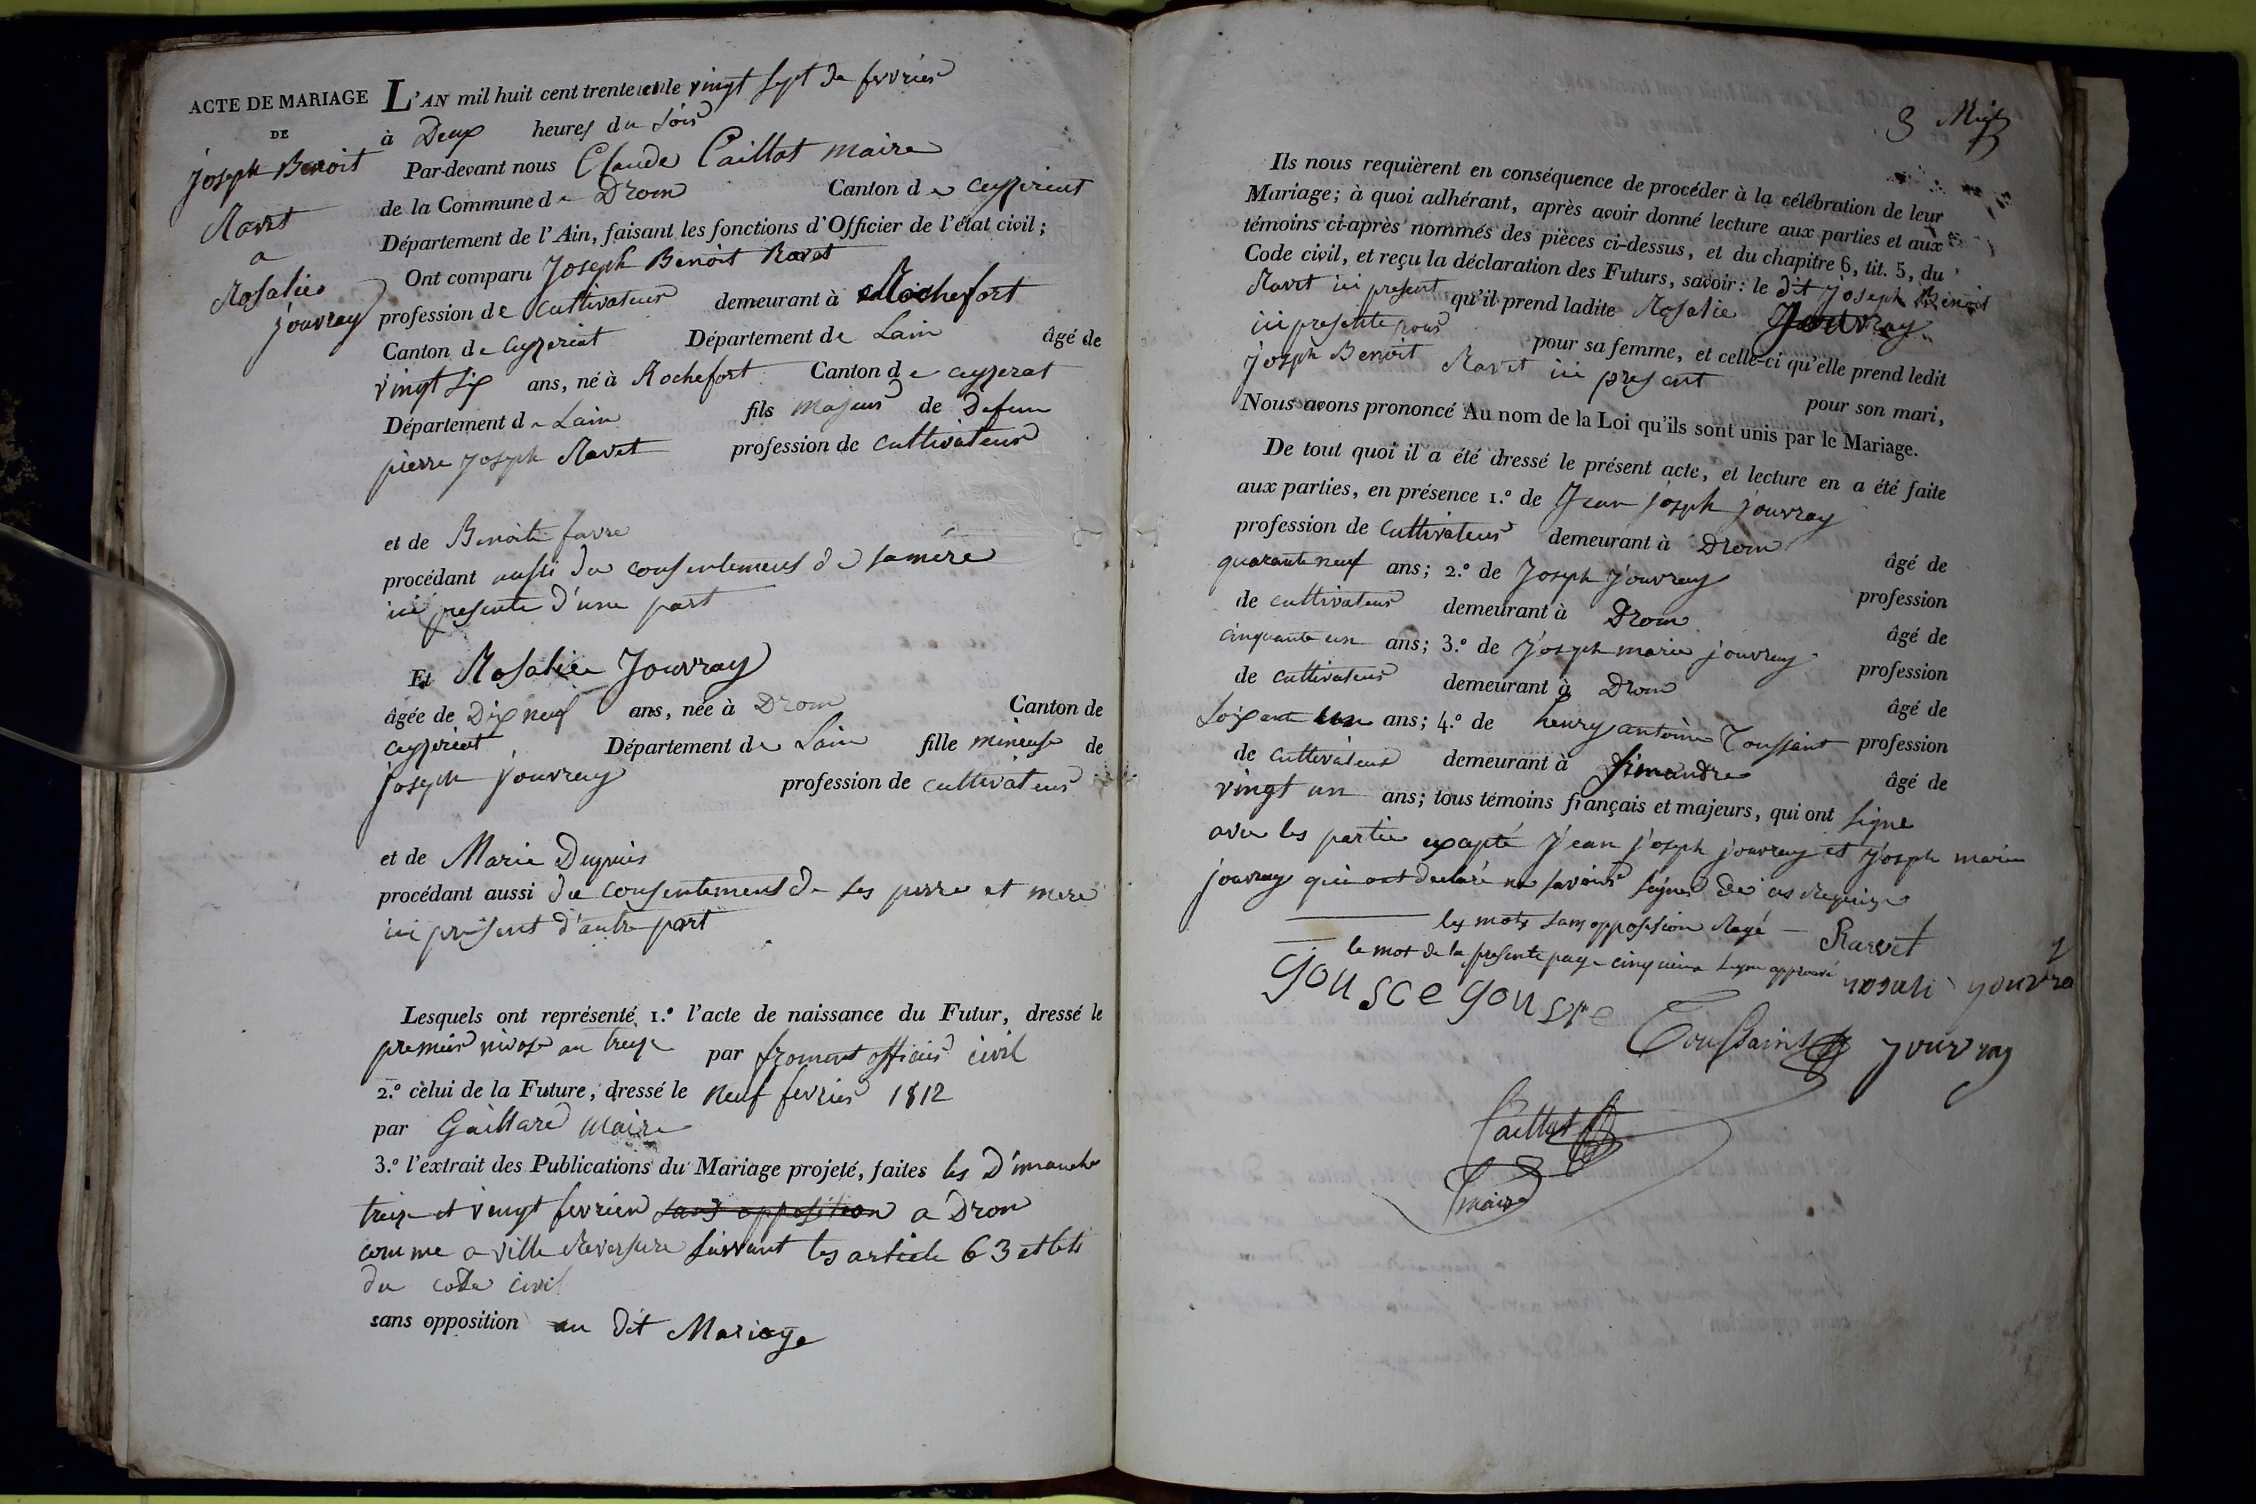 ACTE DE MARIAGE
DE
joseph Benoit
Ravet
a
Rosalie
jouvray
L'AN mil huit cent trente et un le vingt sept de fevrier
à Deux heures du soir
Par-devant nous Claude Caillat maire
de la Commune de Drom Canton de ceyzeriat
Département de l'Ain, faisant les fonctions d'Officier de l'état civil ;
Ont comparu Joseph Benoit Ravet
profession de cultivateur demeurant à Rochefort
Canton de ceyzeriat Département de Lain âgé de
vingt six ans, né à Rochefort Canton de ceyzerat
Département de Lain fils majeur de Defun
pierre joseph Ravet profession de cultivateur
et de Benoite favre
procédant aussi du consentement de sa mère
ici presente d'une part
Et Rosalie Jouvray
âgée de Dix neuf ans, née à Drom Canton de
ceyzeriat Département de Lain fille mineuse de
joseph jouvray profession de cultivateur
et de Marie Dupuis
procédant aussi du consentement de ses perre et mere
ici présent d'autre part
Lesquels ont représenté 1.º l'acte de naissance du Futur, dressé le
premier nivose an treize par froment officier civil
2.º celui de la Future, dressé le neuf fevrier 1812
par Gaillard Maire
3.º l'extrait des Publications du Mariage projeté, faites les Dimanche
treize et vingt fevrier sans opposition a Drom
comme a ville Reversure suivant les article 63 et
du code civil
sans opposition au dit Mariage
3
Ils nous requièrent en conséquence de procéder à la célébration de leur
Mariage; à quoi adhérant, après avoir donné lecture aux parties et aux
témoins ci-après nommés des pièces ci-dessus, et du chapitre 6, tit. 5, du
Code civil, et reçu la déclaration des Futurs, savoir : le dit Joseph Benoit
Ravet ici present qu'il prend ladite Rosalie Jouvray
ici presente pour pour sa femme, et celle-ci qu'elle prend ledit
joseph Benoit Ravet ici present pour son mari,
Nous avons prononcé Au nom de la Loi qu'ils sont unis par le Mariage.
De tout quoi il a été dressé le présent acte, et lecture en a été faite
aux parties, en présence 1.º de Jean joseph jouvray
profession de cultivateur demeurant à Drom âgé de
quarante neuf ans; 2.º de Joseph jouvray profession
de cultivateur demeurant à Drom âgé de
cinquante un ans; 3.º de joseph marie jouvray profession
de cultivateur demeurant à Drom âgé de
soixante un ans; 4.º de henry antoine Toussaint profession
de cultivateur demeurant à Simandre âgé de
vingt un ans; tous témoins français et majeurs, qui ont signe
avec les partie exapté jean joseph jouvray et joseph marie
jouvray qui ont declaré ne savoir signer de ces requize
les mots sans opposition Rayé
le mot de la presente page cinquieme ligne approuvé
Ravet
rosali youvra
Toussaint
jouvray
Caillat
maire